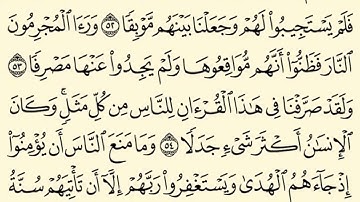 فَلَمْ يَسْتَجِيبُوا۟ لَهُمْ وَجَعَلْنَا بَيْنَهُم مَّوْبِقًا ٥٢ وَرَءَا ٱلْمُجْرِمُونَ
ٱلنَّارَ فَظَنُّوٓا۟ أَنَّهُم مُّوَاقِعُوهَا وَلَمْ يَجِدُوا۟ عَنْهَا مَصْرِفًا ٥٣
وَلَقَدْ صَرَّفْنَا فِى هَٰذَا ٱلْقُرْءَانِ لِلنَّاسِ مِن كُلِّ مَثَلٍ ۚ وَكَانَ
ٱلْإِنسَٰنُ أَكْثَرَ شَىْءٍ جَدَلًا ٥٤ وَمَا مَنَعَ ٱلنَّاسَ أَن يُؤْمِنُوٓا۟
إِذْ جَآءَهُمُ ٱلْهُدَىٰ وَيَسْتَغْفِرُوا۟ رَبَّهُمْ إِلَّآ أَن تَأْتِيَهُمْ سُنَّةُ